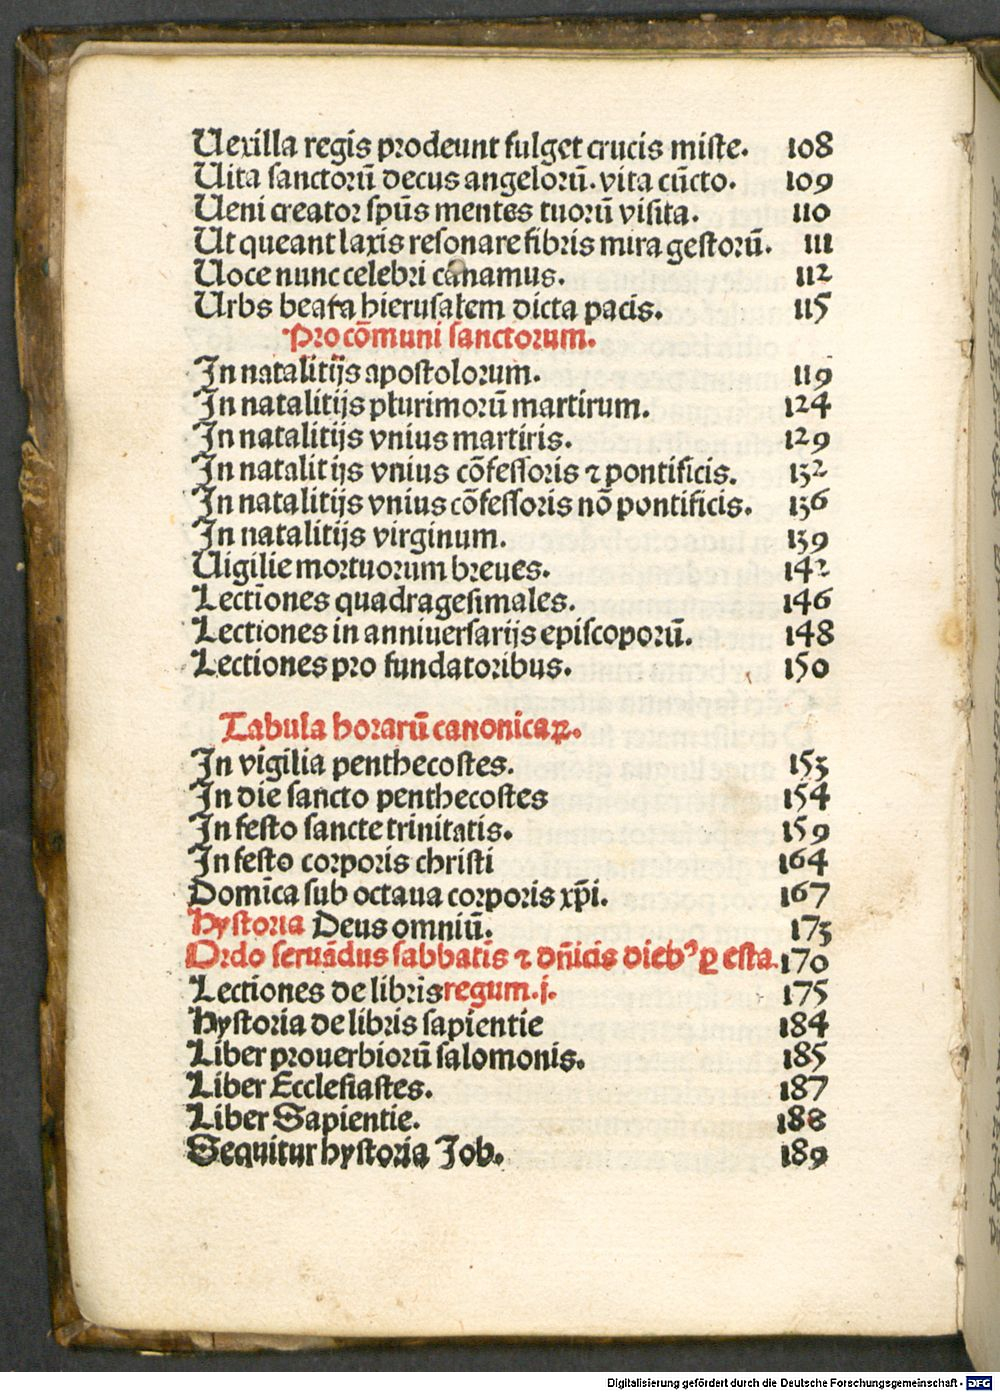 Uexilla regis prodeunt fulget crucis miste. 108
Uita sanctorū decus angelorū. vita cūcto. 109
Ueni creator sp̄us mentes tuorū visita. 110
Ut queant laxis resonare fibris mira gestorū. 111
Uoce nunc celebri canamus. 112
Urbs beata hierusalem dicta pacis. 115
Pro cōmuni sanctorum.
In natalitijs apostolorum. 119
In natalitijs plurimorū martirum. 124
In natalitijs vnius martiris. 129
In natalitijs vnius cōfessoris ⁊ pontificis. 132
In natalitijs vnius cōfessoris nō pontificis. 136
In natalitijs virginum. 139
Uigilie mortuorum breues. 142
Lectiones quadragesimales. 146
Lectiones in anniuersarijs episcoporū. 148
Lectiones pro fundatoribus. 150
Tabula horarū canonicaꝝ.
In vigilia penthecostes. 153
In die sancto penthecostes 154
In festo sancte trinitatis. 159
In festo corporis christi 164
Domīca sub octaua corporis xp̄i. 167
Hystoria Deus omniū. 173
Ordo seruādus sabbatis ⁊ dn̄icis diebꝰ ꝑ esta. 170
Lectiones de libris regum. j. 175
Hystoria de libris sapientie 184
Liber prouerbiorū salomonis. 185
Liber Ecclesiastes. 187
Liber Sapientie. 188
Sequitur hystoria Job. 189
Digitalisierung gefördert durch die Deutsche Forschungsgemeinschaft - DFG